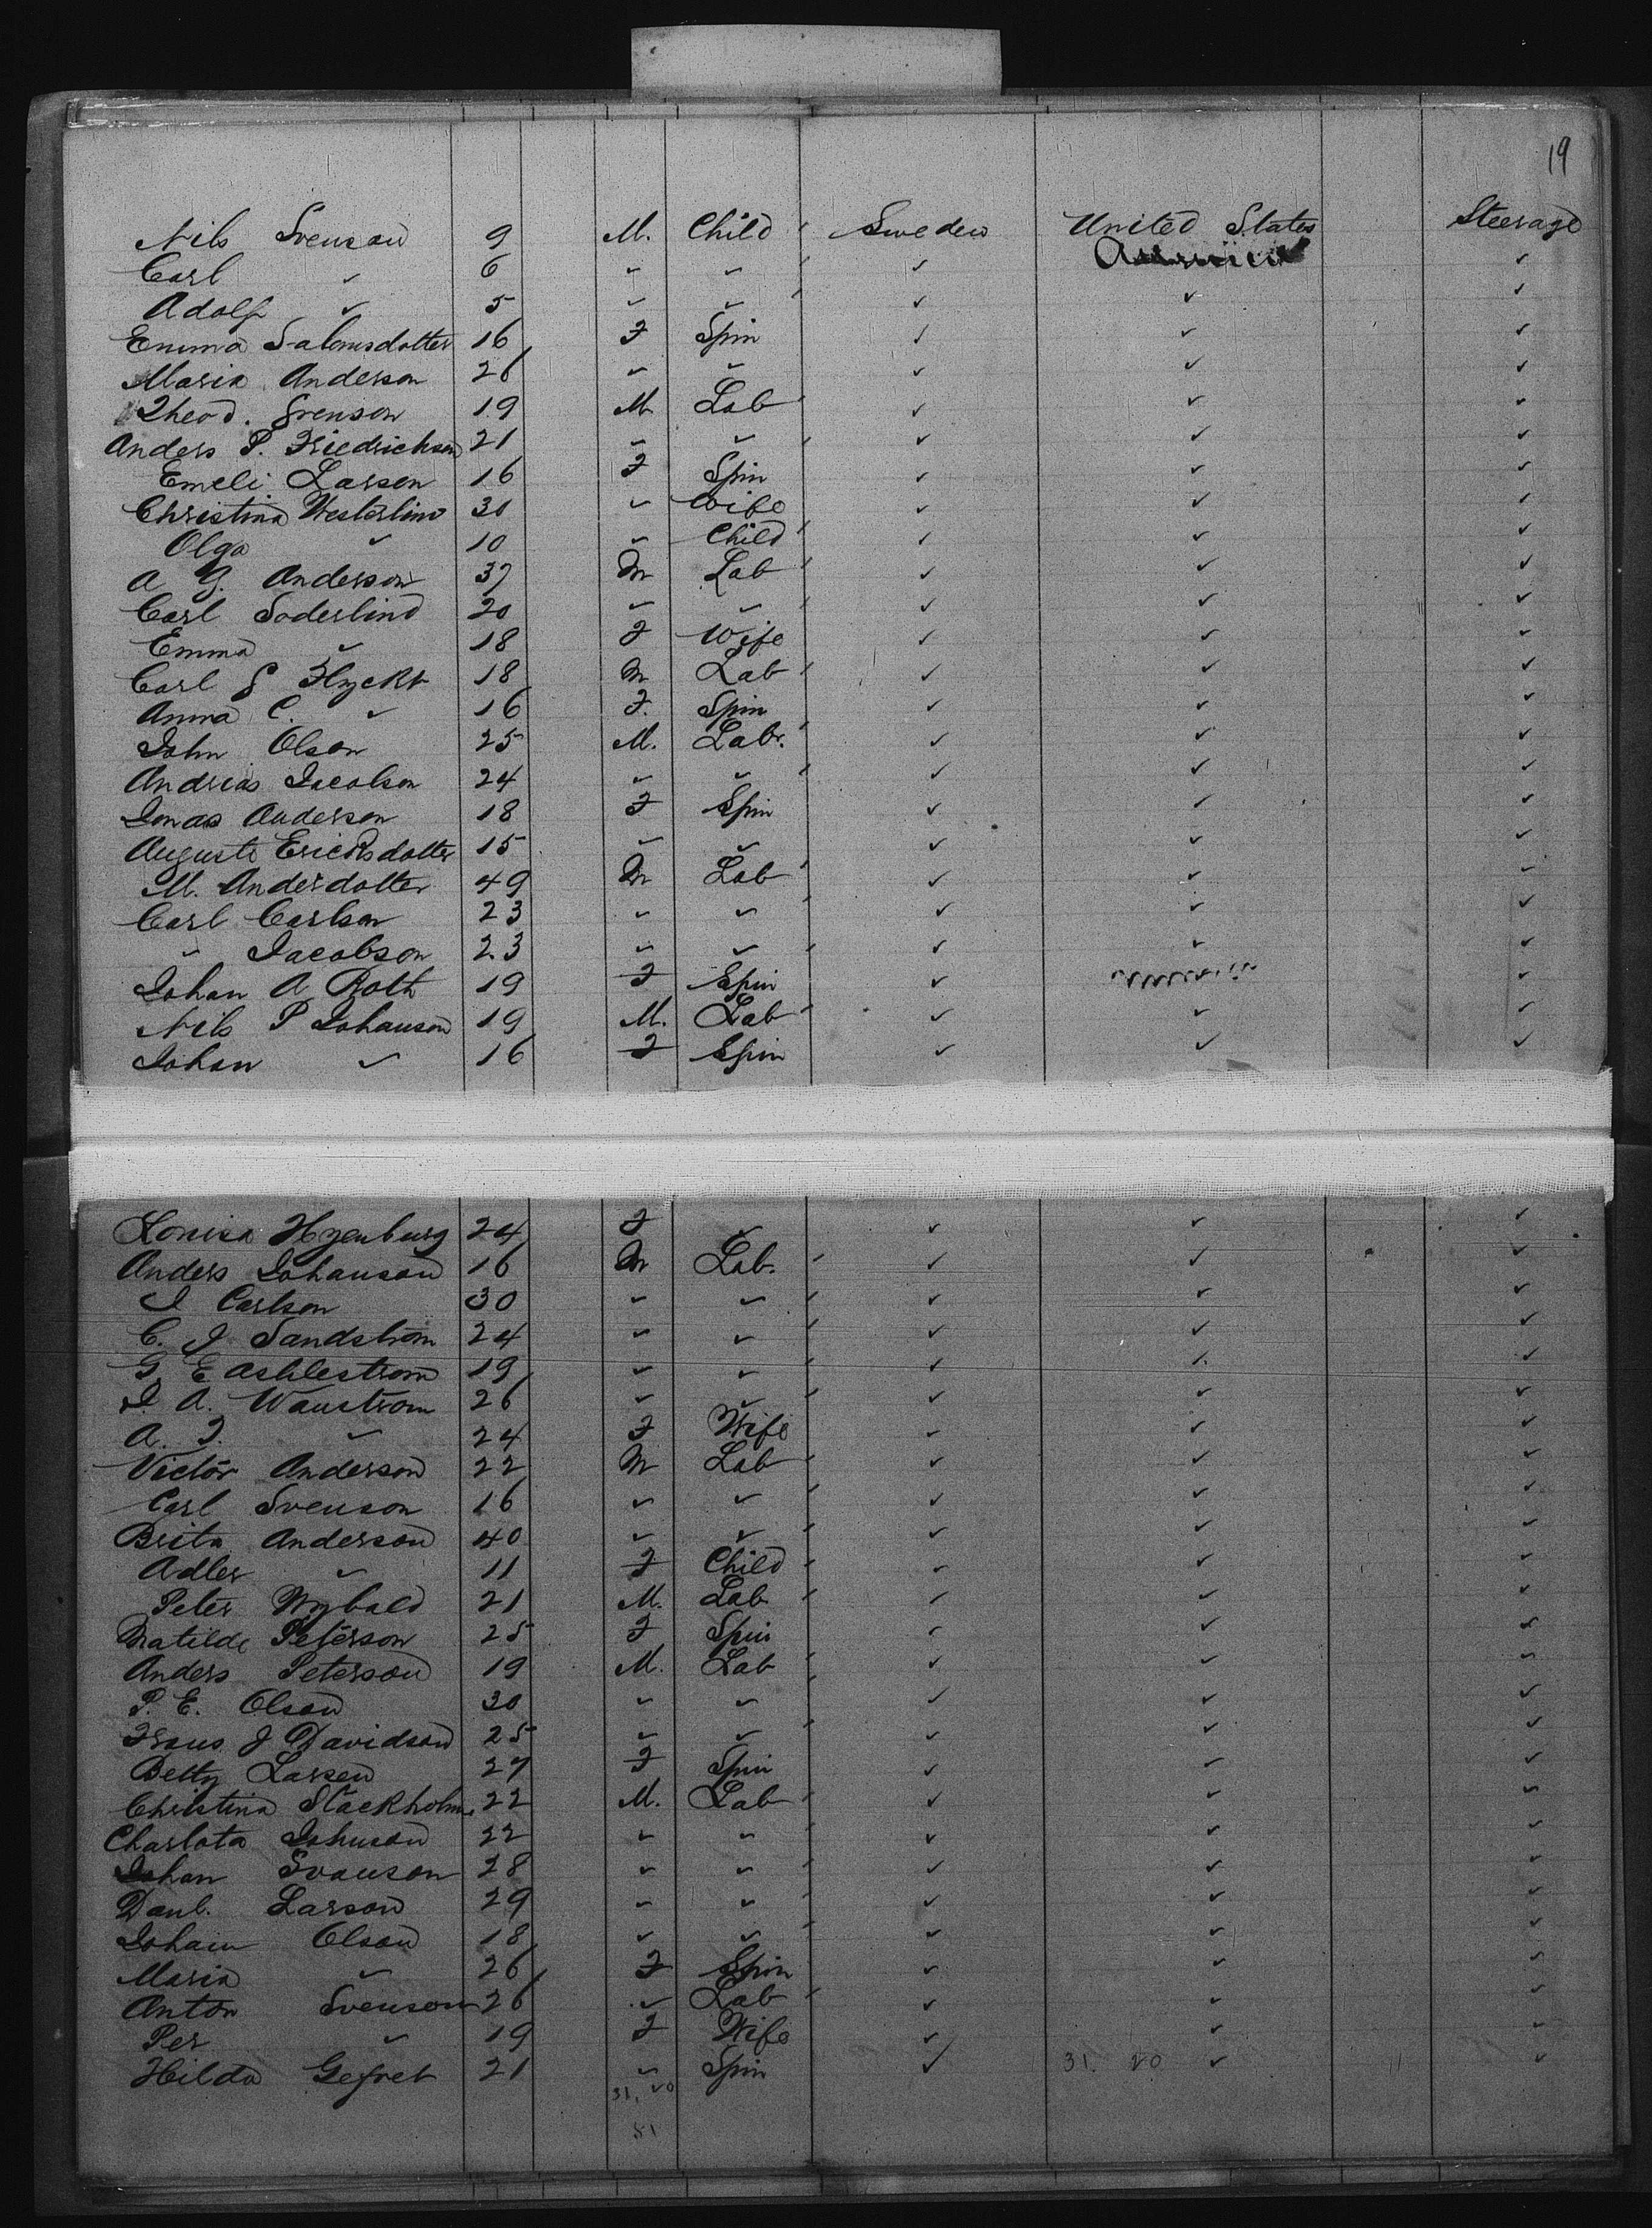 19
Nils Svenson 9 M. Child Sweden United States Steerage
Carl " 6 " " " " "
Adolf " 5 " " " " "
Emma Salomsdotter 16 F Spin " " "
Maria Anderson 26 " " " " "
Theod. Svenson 19 M Lab " " "
Anders P. Friedrichson 21 " " " " "
Emeli Larsen 16 F Spin " " "
Christina Westerlind 30 " Wife " " "
Olga " 10 " Child " " "
A G. Anderson 37 M Lab " " "
Carl Soderlind 20 " " " " "
Emma " 18 F Wife " " "
Carl S Flyckt 18 M Lab " " "
Anna C. " 16 F. Spin " " "
John Olson 25 M. Labr. " " "
Andreas Jacobson 24 " " " " "
Jonas Anderson 18 F Spin " " "
Auguste Ericksdotter 15 " " " " "
M. Anderdotter 49 M Lab " " "
Carl Carlson 23 " " " " "
" Jacobson 23 " " " " "
Johan A Roth 19 F Spin " "
Nils P Johanson 19 M. Lab " " "
Johan " 16 F Spin " " "
Lovisa 24 F " " " "
Anders Johanson 16 M Lab. " " "
J Carlson 30 " " " " "
C. J Sandstrom 24 " " " " "
G. E Ashlestrom 19 " " " " "
J. A. Wanstrom 26 " " " " "
A. J. " 24 F Wife " " "
Victor Anderson 22 M Lab " " "
Carl Svenson 16 " " " " "
Brita Anderson 40 " " " " "
Adler " 11 F Child " " "
Peter Nybald 21 M. Lab " " "
Matilde Peterson 25 F Spin " " "
Anders Peterson 19 M. Lab " " "
P. E. Olson 30 " " " " "
Frans J Davidson 25 " " " " "
Betty Larsen 27 F Spin " " "
Christina Stackholm 22 M. Lab " " "
Charlota Johnson 22 " " " " "
Johan Svanson 28 " " " " "
Danl. Larson 29 " " " " "
Johan Olson 18 " " " " "
Maria " 26 F Spin " " "
Anton Svenson 26 " Lab " " "
Per " 19 F Wife " " "
Hilda Gefret 21 " Spin " 31. 20 " 11 "
31, 20
51